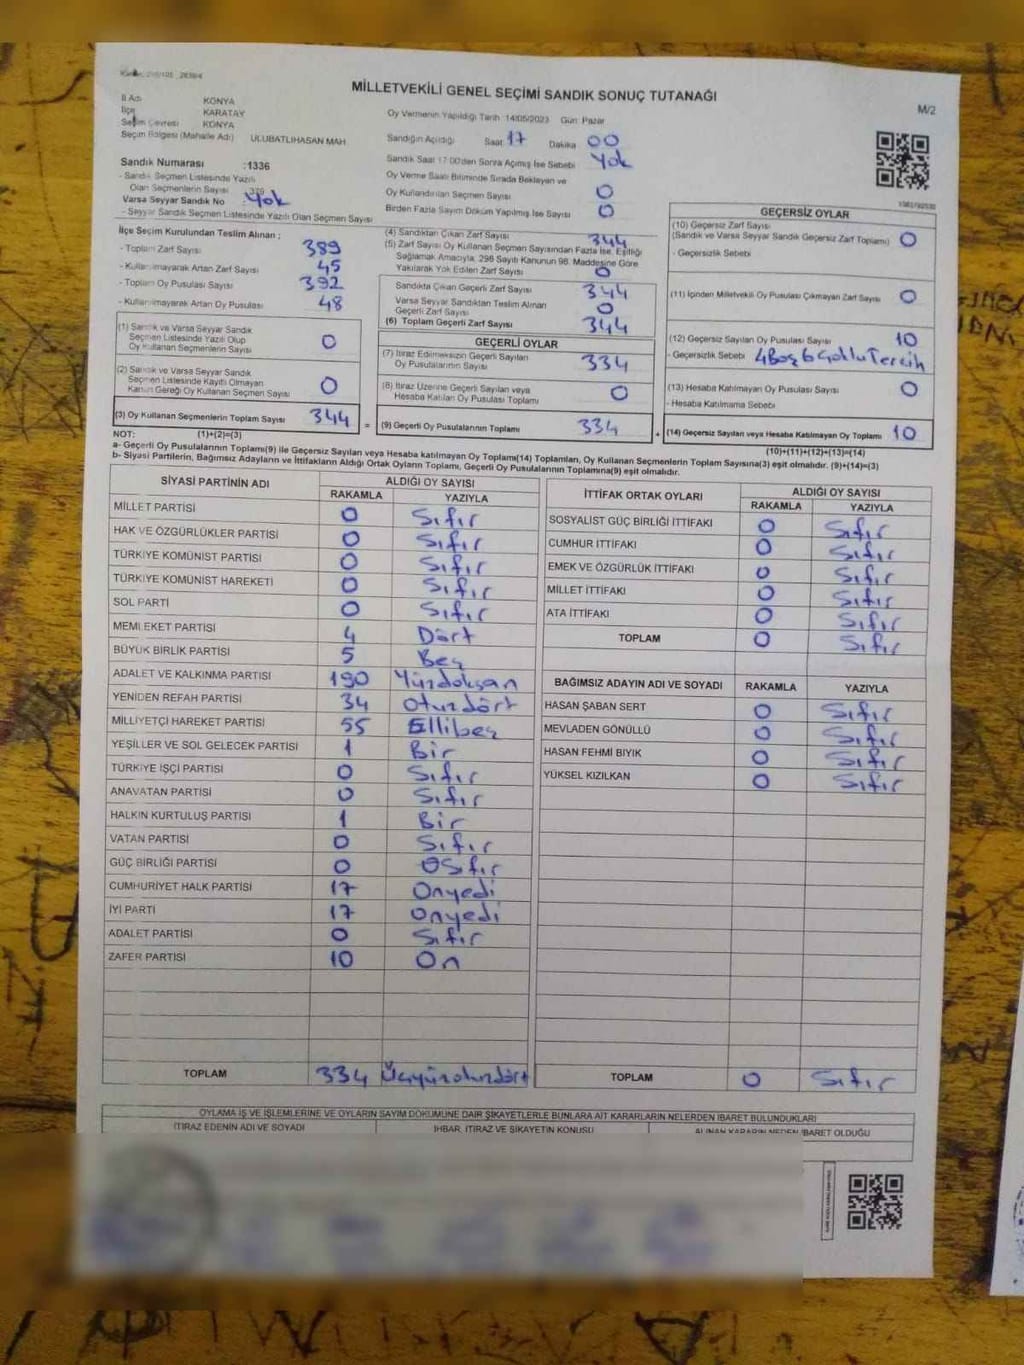 MİLLETVEKİLİ GENEL SEÇİMİ SANDIK SONUÇ TUTANAĞI
M/2
İl Adı KONYA
İlçe KARATAY
Seçim Çevresi KONYA
Seçim Bölgesi (Mahalle Adı) ULUBATLIHASAN MAH.
Sandık Numarası :1336
- Sandık Seçmen Listesinde Yazılı
Olan Seçmenlerin Sayısı
Varsa Seyyar Sandık No : Yok
- Seyyar Sandık Seçmen Listesinde Yazılı Olan Seçmen Sayısı
İlçe Seçim Kurulundan Teslim Alınan :
- Toplam Zarf Sayısı 389
- Kullanılmayarak Artan Zarf Sayısı 45
- Toplam Oy Pusulası Sayısı 392
- Kullanılmayarak Artan Oy Pusulası 48
(1) Sandık ve Varsa Seyyar Sandık
Seçmen Listesinde Yazılı Olup
Oy Kullanan Seçmenlerin Sayısı 0
(2) Sandık ve Varsa Seyyar Sandık
Seçmen Listesinde Kayıtlı Olmayan
Kanun Gereği Oy Kullanan Seçmen Sayısı 0
(3) Oy Kullanan Seçmenlerin Toplam Sayısı 344
Oy Vermenin Yapıldığı Tarih 14/05/2023 Gün: Pazar
Sandığın Açıldığı Saat 17 Dakika 00
Sandık Saat 17:00'den Sonra Açılmış İse Sebebi Yok
Oy Verme Saati Bitiminde Sırada Bekleyen ve
Oy Kullandırılan Seçmen Sayısı 0
Birden Fazla Sayım Döküm Yapılmış İse Sayısı 0
(4) Sandıktan Çıkan Zarf Sayısı 344
(5) Zarf Sayısı Oy Kullanan Seçmen Sayısından Fazla İse, Eşitliği
Sağlamak Amacıyla, 298 Sayılı Kanunun 98. Maddesine Göre
Yakılarak Yok Edilen Zarf Sayısı 0
Sandıkta Çıkan Geçerli Zarf Sayısı 344
Varsa Seyyar Sandıktan Teslim Alınan
Geçerli Zarf Sayısı 0
(6) Toplam Geçerli Zarf Sayısı 344
GEÇERLİ OYLAR
(7) İtiraz Edilmeksizin Geçerli Sayılan
Oy Pusulalarının Sayısı 334
(8) İtiraz Üzerine Geçerli Sayılan veya
Hesaba Katılan Oy Pusulası Toplamı 0
= (9) Geçerli Oy Pusulalarının Toplamı 334
GEÇERSİZ OYLAR
(10) Geçersiz Zarf Sayısı
(Sandık ve Varsa Seyyar Sandık Geçersiz Zarf Toplamı) 0
- Geçersizlik Sebebi
(11) İçinden Milletvekili Oy Pusulası Çıkmayan Zarf Sayısı 0
(12) Geçersiz Sayılan Oy Pusulası Sayısı 10
- Geçersizlik Sebebi 4 Boş 6 Çoklu Tercih
(13) Hesaba Katılmayan Oy Pusulası Sayısı 0
- Hesaba Katılmama Sebebi
+ (14) Geçersiz Sayılan veya Hesaba Katılmayan Oy Toplamı 10
NOT: (1)+(2)=(3) (10)+(11)+(12)+(13)=(14)
a- Geçerli Oy Pusulalarının Toplamı(9) ile Geçersiz Sayılan veya Hesaba katılmayan Oy Toplamı(14) Toplamları, Oy Kullanan Seçmenlerin Toplam Sayısına(3) eşit olmalıdır. (9)+(14)=(3)
b- Siyasi Partilerin, Bağımsız Adayların ve İttifakların Aldığı Ortak Oyların Toplamı, Geçerli Oy Pusulalarının Toplamına(9) eşit olmalıdır.
SİYASİ PARTİNİN ADI ALDIĞI OY SAYISI
RAKAMLA YAZIYLA
MİLLET PARTİSİ 0 Sıfır
HAK VE ÖZGÜRLÜKLER PARTİSİ 0 Sıfır
TÜRKİYE KOMÜNİST PARTİSİ 0 Sıfır
TÜRKİYE KOMÜNİST HAREKETİ 0 Sıfır
SOL PARTİ 0 Sıfır
MEMLEKET PARTİSİ 4 Dört
BÜYÜK BİRLİK PARTİSİ 5 Beş
ADALET VE KALKINMA PARTİSİ 190 Yüzdoksan
YENİDEN REFAH PARTİSİ 34 Otuzdört
MİLLİYETÇİ HAREKET PARTİSİ 55 Ellibeş
YEŞİLLER VE SOL GELECEK PARTİSİ 1 Bir
TÜRKİYE İŞÇİ PARTİSİ 0 Sıfır
ANAVATAN PARTİSİ 0 Sıfır
HALKIN KURTULUŞ PARTİSİ 1 Bir
VATAN PARTİSİ 0 Sıfır
GÜÇ BİRLİĞİ PARTİSİ 0 Sıfır
CUMHURİYET HALK PARTİSİ 17 Onyedi
İYİ PARTİ 17 Onyedi
ADALET PARTİSİ 0 Sıfır
ZAFER PARTİSİ 10 On
TOPLAM 334 Üçyüzotuzdört
İTTİFAK ORTAK OYLARI ALDIĞI OY SAYISI
RAKAMLA YAZIYLA
SOSYALİST GÜÇ BİRLİĞİ İTTİFAKI 0 Sıfır
CUMHUR İTTİFAKI 0 Sıfır
EMEK VE ÖZGÜRLÜK İTTİFAKI 0 Sıfır
MİLLET İTTİFAKI 0 Sıfır
ATA İTTİFAKI 0 Sıfır
TOPLAM 0 Sıfır
BAĞIMSIZ ADAYIN ADI VE SOYADI RAKAMLA YAZIYLA
HASAN ŞABAN SERT 0 Sıfır
MEVLADEN GÖNÜLLÜ 0 Sıfır
HASAN FEHMİ BIYIK 0 Sıfır
YÜKSEL KIZILKAN 0 Sıfır
TOPLAM 0 Sıfır
OYLAMA İŞ VE İŞLEMLERİNE VE OYLARIN SAYIM DÖKÜMÜNE DAİR ŞİKAYETLERLE BUNLARA AİT KARARLARIN NELERDEN İBARET BULUNDUKLARI
İTİRAZ EDENİN ADI VE SOYADI İHBAR, İTİRAZ VE ŞİKAYETİN KONUSU ALINAN KARARIN NEDEN İBARET OLDUĞU